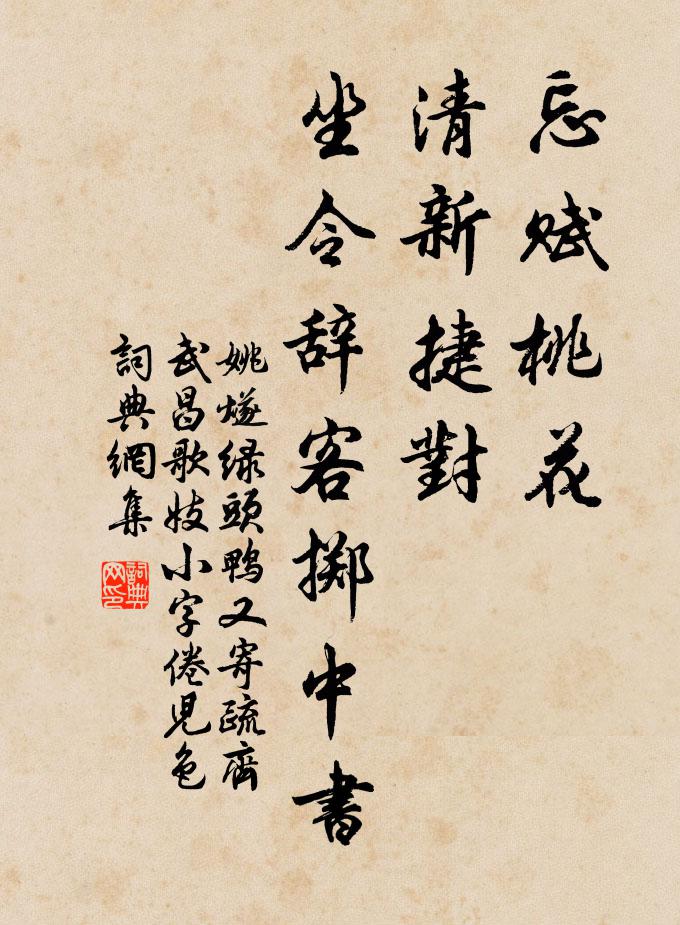 忘赋桃花
清新捷對
坐令辞客掷中書
姚燧绿頭鸭又寄疏齋
武昌歌妓小字倦児色
詞典網集
詞典
网印